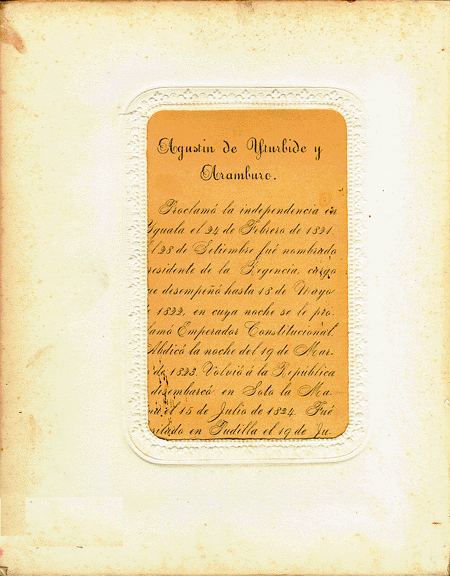 Agustin de Yturbide y
Aramburo.
Proclamó la independencia en
Yguala el 24 de Febrero de 1821.
El 28 de Setiembre fué nombrado
residente de la Regencia, cargo
ue desempeñó hasta 18 de Mayo
e 1822, en cuya noche se le pro-
lamó Emperador Constitucional.
Abdicó la noche del 19 de Mar-
de 1823. Volvió á la República
desembarcó en Soto la Ma-
el 15 de Julio de 1824. Fué
silado en Padilla el 19 de Ju-